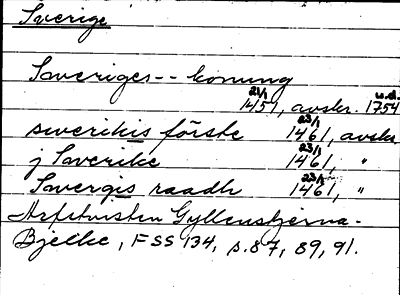 Sverige
Sweriges -- konung
21/1 1457, avskr. u.å. 1754
swerikis förste 23/1 1461, avskr.
j Swerike 23/1 1461, "
Swergis raadh 23/1 1461, "
Arfstvisten Gyllenstjerna-
Bjelke, FSS 134, s. 87, 89, 91.